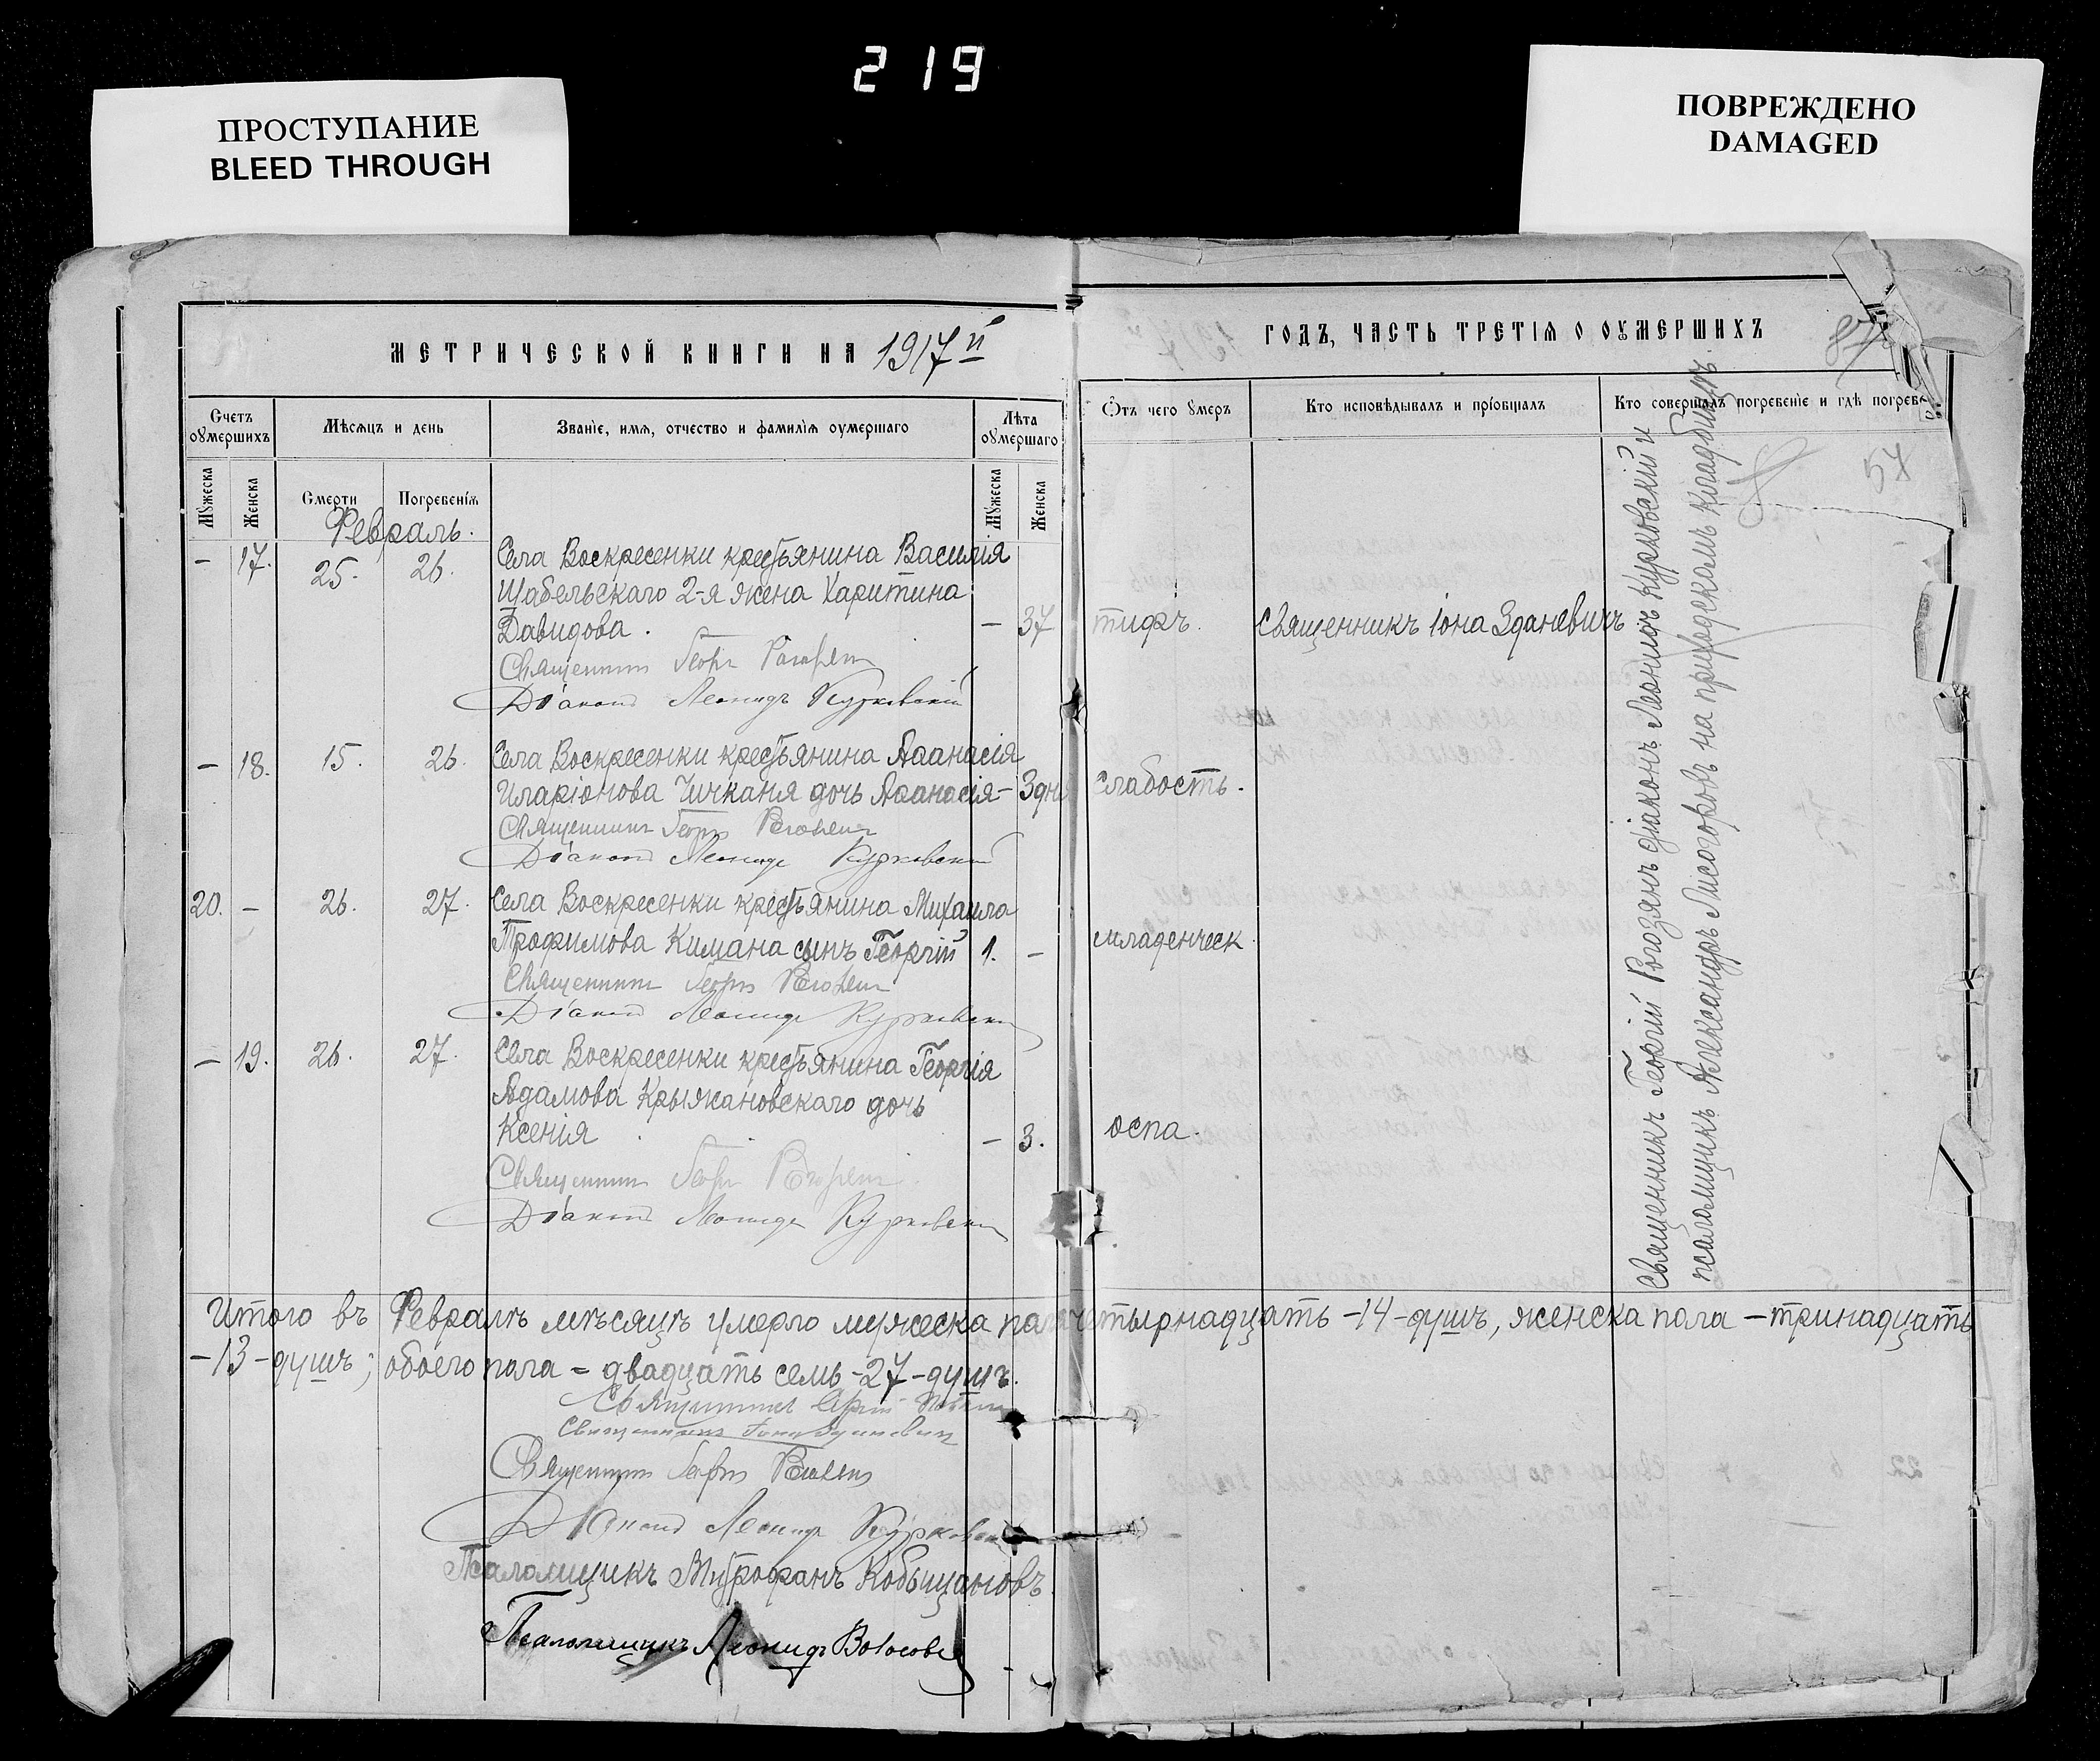 219
ПРОСТУПАНИЕ
BLEED THROUGH
ПОВРЕЖДЕНО
DAMAGED
МЕТРИЧЕСКОЙ КНИГИ НА 1917й
ГОДЪ, ЧАСТЬ ТРЕТІЯ О ОУМЕРШИХЪ
87
Счетъ оумершихъ
Мѣсяцъ и день
Званіе, имя, отчество и фамилія оумершаго
Лѣта оумершаго
Отъ чего умеръ
Кто исповѣдывалъ и пріобщалъ
Кто совершалъ погребеніе и гдѣ погреб
Мужеска
Женска
Смерти
Погребенія
Мужеска
Женска
57
Февраль.
– 17. 25. 26. Села Воскресенки крестьянина Василія
Щабельскаго 2-я жена Харитина
Давидова. – 37 тифъ. Священникъ Іона Зданевичъ
Священник Георг
Діаконъ Леонидъ Курковскій
– 18. 15. 26. Села Воскресенки крестьянина Аѳанасія
Иларіонова Чичканя дочь Аѳанасія – 3 дня слабость.
Священник Георг
Діаконъ Леонидъ Курковскій
20. – 26. 27. Села Воскресенки крестьянина Михаила
Трофимова Кимана сынъ Георгій 1. – младенческ
Священник Георг
Діаконъ Леонидъ Курковскій
– 19. 26. 27. Села Воскресенки крестьянина Георгія
Адамова Крыжановскаго дочь
Ксенія – 3. оспа.
Священник Георг
Діаконъ Леонидъ Курковскій
Священникъ Георгій Рогозянъ діаконъ Леонидъ Курковскій и
псаломщикъ Александръ Лисогоровъ на приходскомъ кладбищѣ.
Итого въ Февралѣ мѣсяцѣ умерло мужеска пола четырнадцать -14- душъ, женска пола – тринадцать
-13- душъ; обоего пола = двадцать семь -27- душъ.
Священник
Священникъ Іона Зданевич
Священник Георг
Діаконъ Леонидъ Курковскій
Псаломщикъ Митрофанъ Кобыщановъ.
Псаломщикъ Леонидъ Волосовъ